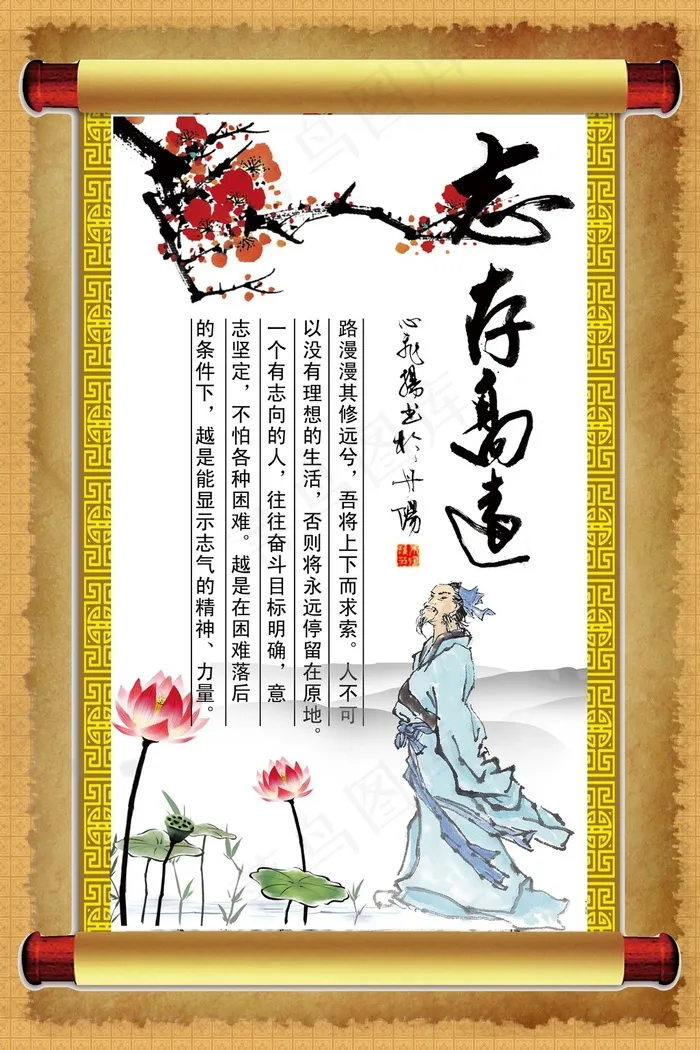 志存高远
心飞扬书于丹阳
路漫漫其修远兮，吾将上下而求索。人不可
以没有理想的生活，否则将永远停留在原地。
一个有志向的人，往往奋斗目标明确，意
志坚定，不怕各种困难。越是在困难落后
的条件下，越是能显示志气的精神、力量。